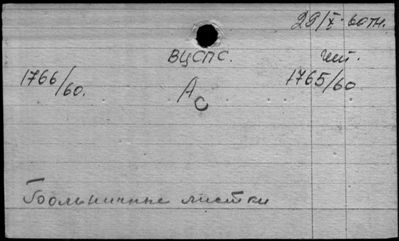 29/X-60тн.
ВЦСПС. чит.
1766/60. Ас 1765/60
Больничные листки